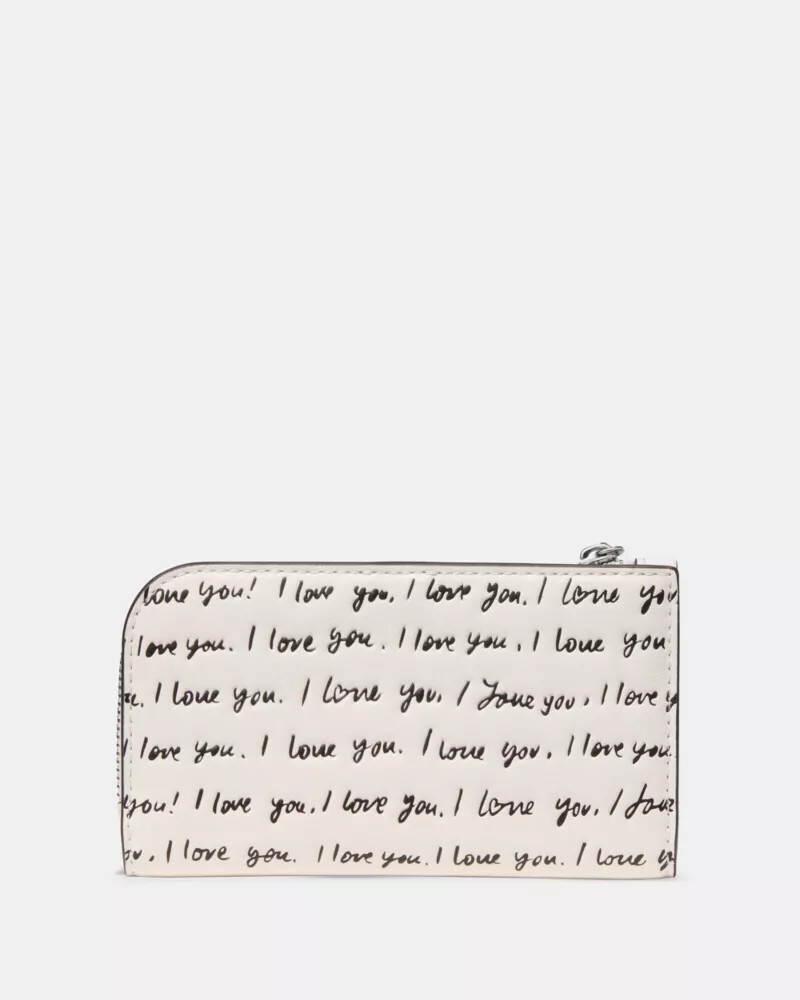 love you! I love you. I love you. I love you
love you. I love you. I love you. I love you
I love you. I love you. I love you. I love
I love you. I love you. I love you. I love you
you! I love you. I love you. I love you. I love
I love you. I love you. I love you. I love